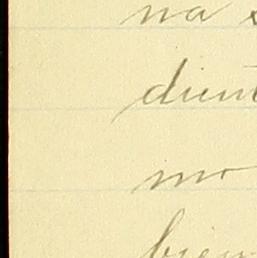 na
dient
mo
bien